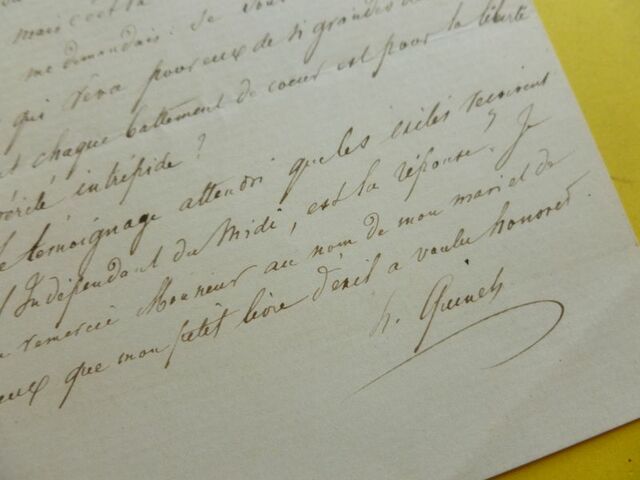 mais c'est la
me demandais : se
qui rêva pour eux de si grandes
chaque battement de coeur est pour la liberté
vérité intrépide ?
témoignage attendri que les exilés reçoivent
l'Indépendant du Midi, est la réponse. Je
remercie Monsieur au nom de mon mari et de
ceux que mon petit livre d'exil a voulu honorer.
h. Quinet